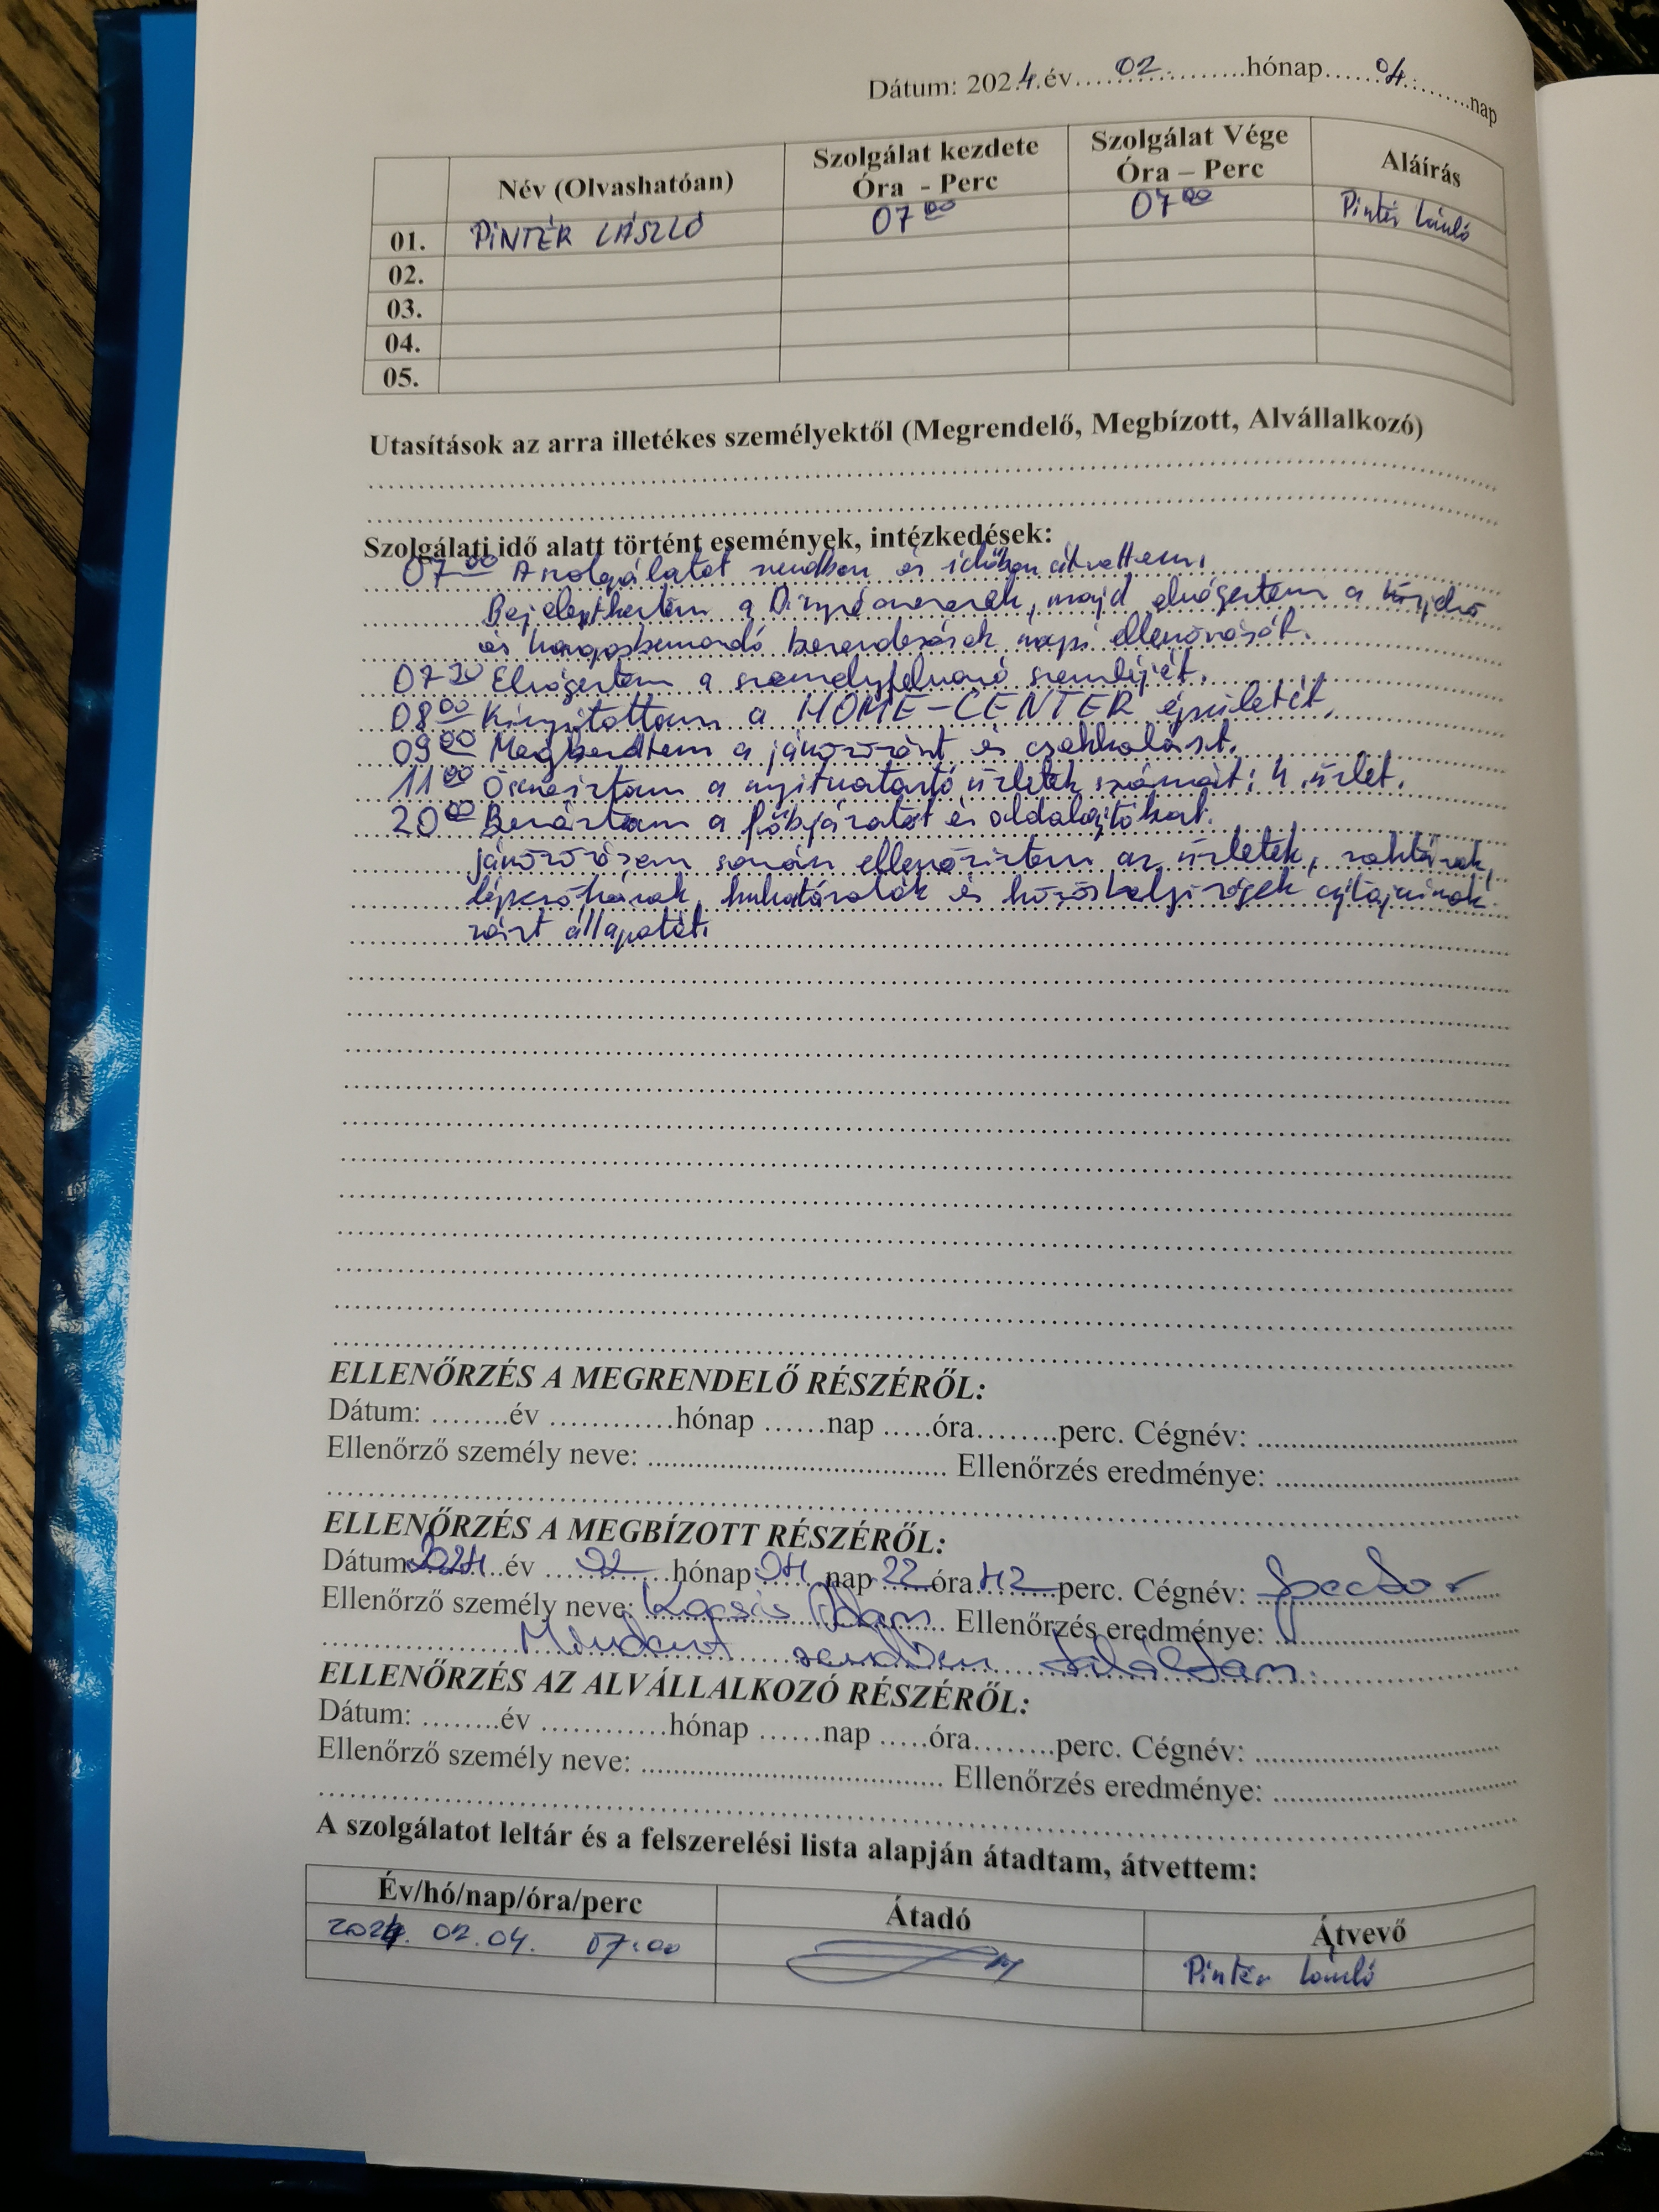 Dátum: 2024.év....02...........hónap......04.........nap
Név (Olvashatóan) Szolgálat kezdete Óra - Perc Szolgálat Vége Óra – Perc Aláírás
01. PINTÉR LÁSZLÓ 07 00 07 00 Pintér László
02.
03.
04.
05.
Utasítások az arra illetékes személyektől (Megrendelő, Megbízott, Alvállalkozó)
Szolgálati idő alatt történt események, intézkedések:
07 00 A szolgálatot rendben és időben átvettem.
Bejelentkeztem a majd elvégeztem a
és hangosbemondó berendezések napi ellenőrzését.
07 30 Elvégeztem a személyfelvonó szemléjét.
08 00 Kinyitottam a HOME-CENTER épületét.
09 00 Megkezdtem a járőrözést és csekkolást.
11 00 Összeírtam a nyitvatartó üzletek számát: 4 üzlet.
20 00 Bezártam a főbejáratot és oldalajtókat.
járőrözésem során ellenőriztem az üzletek, raktárak,
lépcsőházak, hulladéktárolók és közös helyiségek ajtajainak
zárt állapotát.
ELLENŐRZÉS A MEGRENDELŐ RÉSZÉRŐL:
Dátum: ........év ............hónap ......nap .....óra........perc. Cégnév: ..............................
Ellenőrző személy neve: .............................. Ellenőrzés eredménye: ..............................
ELLENŐRZÉS A MEGBÍZOTT RÉSZÉRŐL:
Dátum 2024 év 02 hónap 04 nap 22 óra 42 perc. Cégnév: Spector
Ellenőrző személy neve: Kocsis Ádám Ellenőrzés eredménye:
Mindent rendben találtam.
ELLENŐRZÉS AZ ALVÁLLALKOZÓ RÉSZÉRŐL:
Dátum: ........év ............hónap ......nap .....óra........perc. Cégnév: ..............................
Ellenőrző személy neve: .............................. Ellenőrzés eredménye: ..............................
A szolgálatot leltár és a felszerelési lista alapján átadtam, átvettem:
Év/hó/nap/óra/perc Átadó Átvevő
2024. 02.04. 07:00 Pintér László